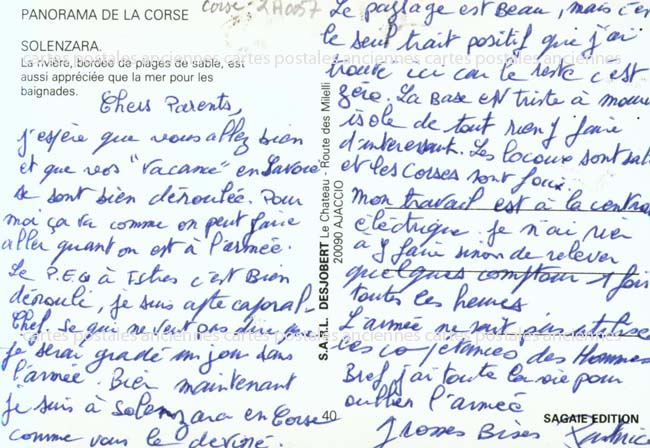 Corse - 2A0057
PANORAMA DE LA CORSE
SOLENZARA.
La rivière, bordée de plages de sable, est
aussi appréciée que la mer pour les
baignades.
cartes postales anciennes cartes postales anciennes cartes postales anciennes
Chers Parents,
j'espère que vous allez bien
et que vos "vacance" en Savoie
se sont bien déroulée. Pour
moi ça va comme on peut faire
aller quant on est à l'armée.
Le P.E. à Istres c'est Bien
dérouli, je suis apte caporal
Chef. Se qui ne veut pas dire que
je serai gradé un jour dans
l'armée. Bien maintenant
je suis à Solenzara en Corse
comme vous le deviné.
S.A.R.L. DESJOBERT Le Chateau - Route des Milelli
20090 AJACCIO
Le paysage est Beau, mais c'est
le seul trait positif que j'ai
trouve ici car le reste c'est
zéro. La Base est triste à mourir
isole de tout rien y faire
d'interessant. Les locaux sont
et les Corses sont
mon travail est à la central
éléctrique je n'ai rien
a y faire sinon de relever
quelques compteur 1 fois
toutes les heures
L'armée ne sait pas utiliser
les copétances des Hommes
Bref j'ai toute envie pour
oublier l'armée
Grosses Bises
40
SAGAIE EDITION
cartes postales anciennes cartes postales anciennes